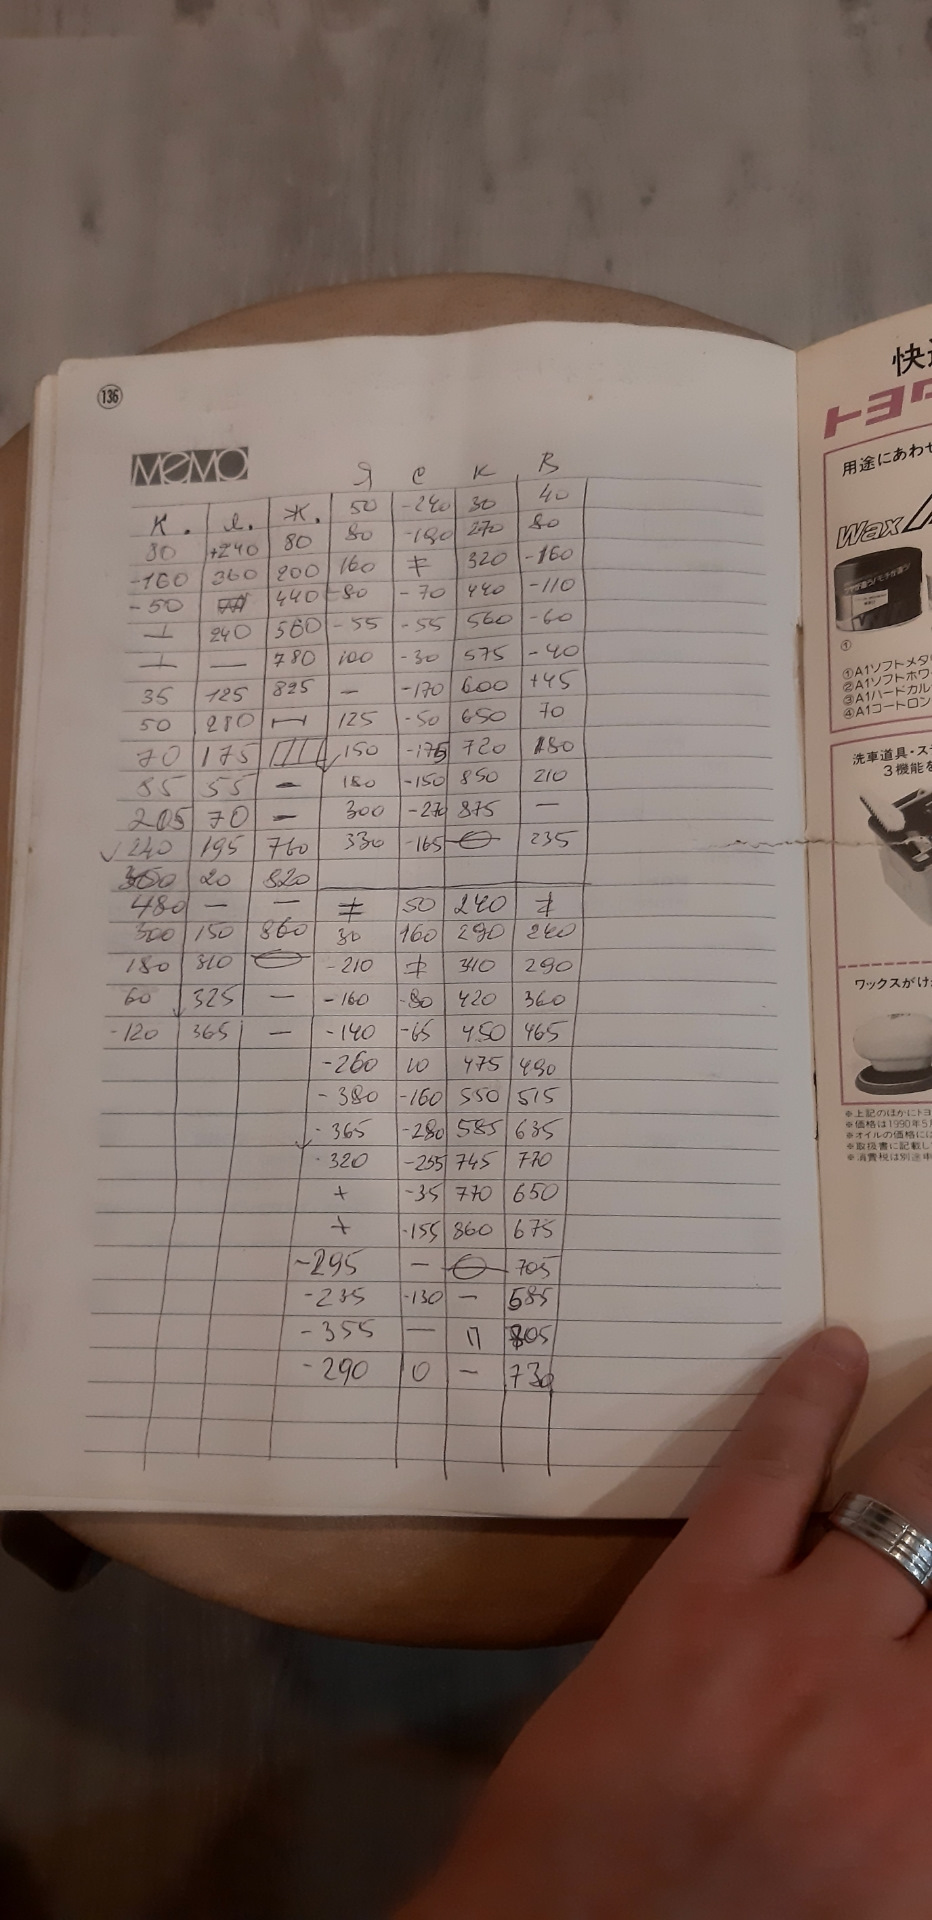 136
MEMO
Я С К В
К. Л. Ж. 50 -240 30 40
30 +240 80 80 -180 270 80
-160 360 200 160 ≠ 320 -160
-50 440 -80 -70 440 -110
⊥ 240 560 -55 -55 560 -60
⊥ — 780 100 -30 575 -40
35 125 825 — -170 600 +45
50 280 — 125 -50 650 70
70 175 150 -175 720 180
85 55 — 180 -150 850 210
205 70 — 300 -270 875 —
√ 240 195 760 330 -165 235
20 820
480 — — ≠ 50 240 ≠
300 150 860 30 160 290 240
180 310 -210 ≠ 340 290
60 325 — -160 -80 420 360
-120 365 — -140 -65 450 465
-260 10 475 490
-380 -160 550 515
-365 -280 585 635
-320 -255 745 770
+ -35 770 650
+ -155 860 675
-295 — 705
-235 -130 — 585
-355 — П 805
-290 0 — 730
快
トヨタ
用途にあわせ
Wax
①
①A1ソフトメタ
②A1ソフトホワ
③A1ハードカル
④A1コートロン
洗車道具・ス
3機能を
ワックスがけ
※上記のほかにトヨ
※価格は1990年5
※オイルの価格には
※取扱書に記載し
※消費税は別途申